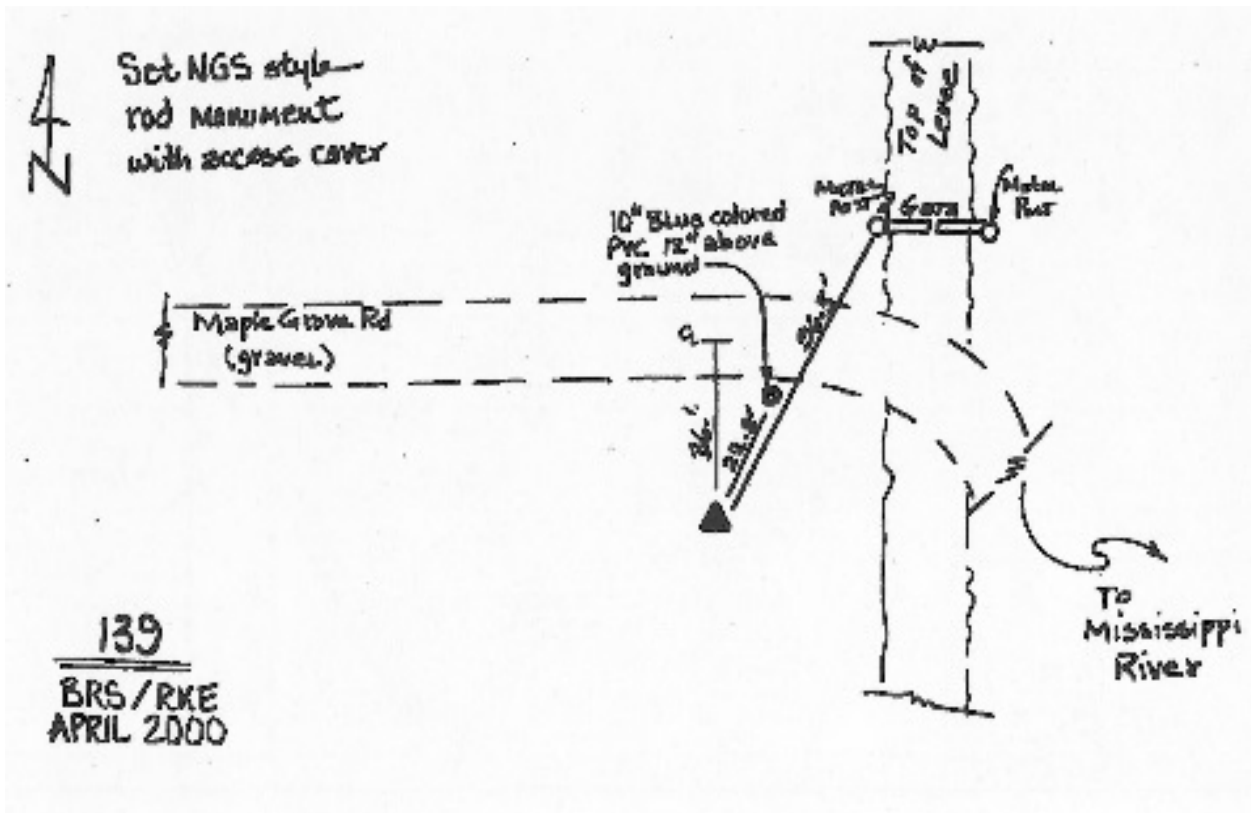 N
Set NGS style
rod monument
with access cover
Top of
Levee
Metal
Post
Gate
Metal
Post
10" Blue colored
PVC 12" above
ground
Maple Grove Rd
(gravel)
36.'
To
Mississippi
River
139
BRS/RKE
APRIL 2000